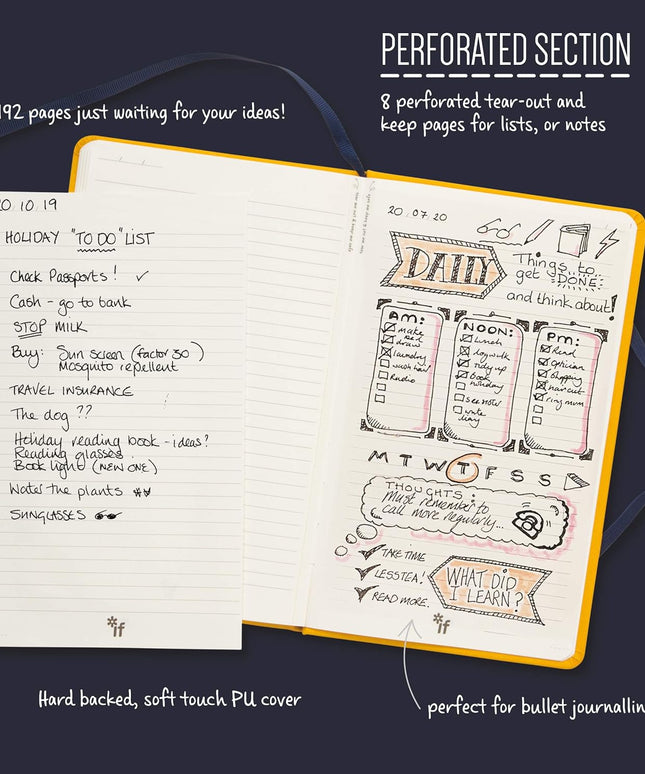 PERFORATED SECTION
8 perforated tear-out and
keep pages for lists, or notes
192 pages just waiting for your ideas!
20.10.19
HOLIDAY "TO DO" LIST
Check Passports! ✓
Cash - go to bank
STOP MILK
Buy: Sun screen (factor 30)
Mosquito repellent
TRAVEL INSURANCE
The dog ??
Holiday reading book - ideas?
Reading glasses.
Book light (NEW ONE)
Water the plants
SUNGLASSES
*if
20.07.20
DAILY
Things to
get DONE
and think about!
AM:
make bed
draw
laundry
wash hair
Radio
NOON:
Lunch
dogwalk
Tidy up
Book
holiday
write
diary
PM:
Read
Optician
Shopping
haircut
ring mum
M T W T F S S
THOUGHTS:
Must remember to
call more regularly...
TAKE TIME
LESS TEA!
READ MORE.
WHAT DID
I LEARN?
*if
Hard backed, soft touch PU cover
perfect for bullet journallin